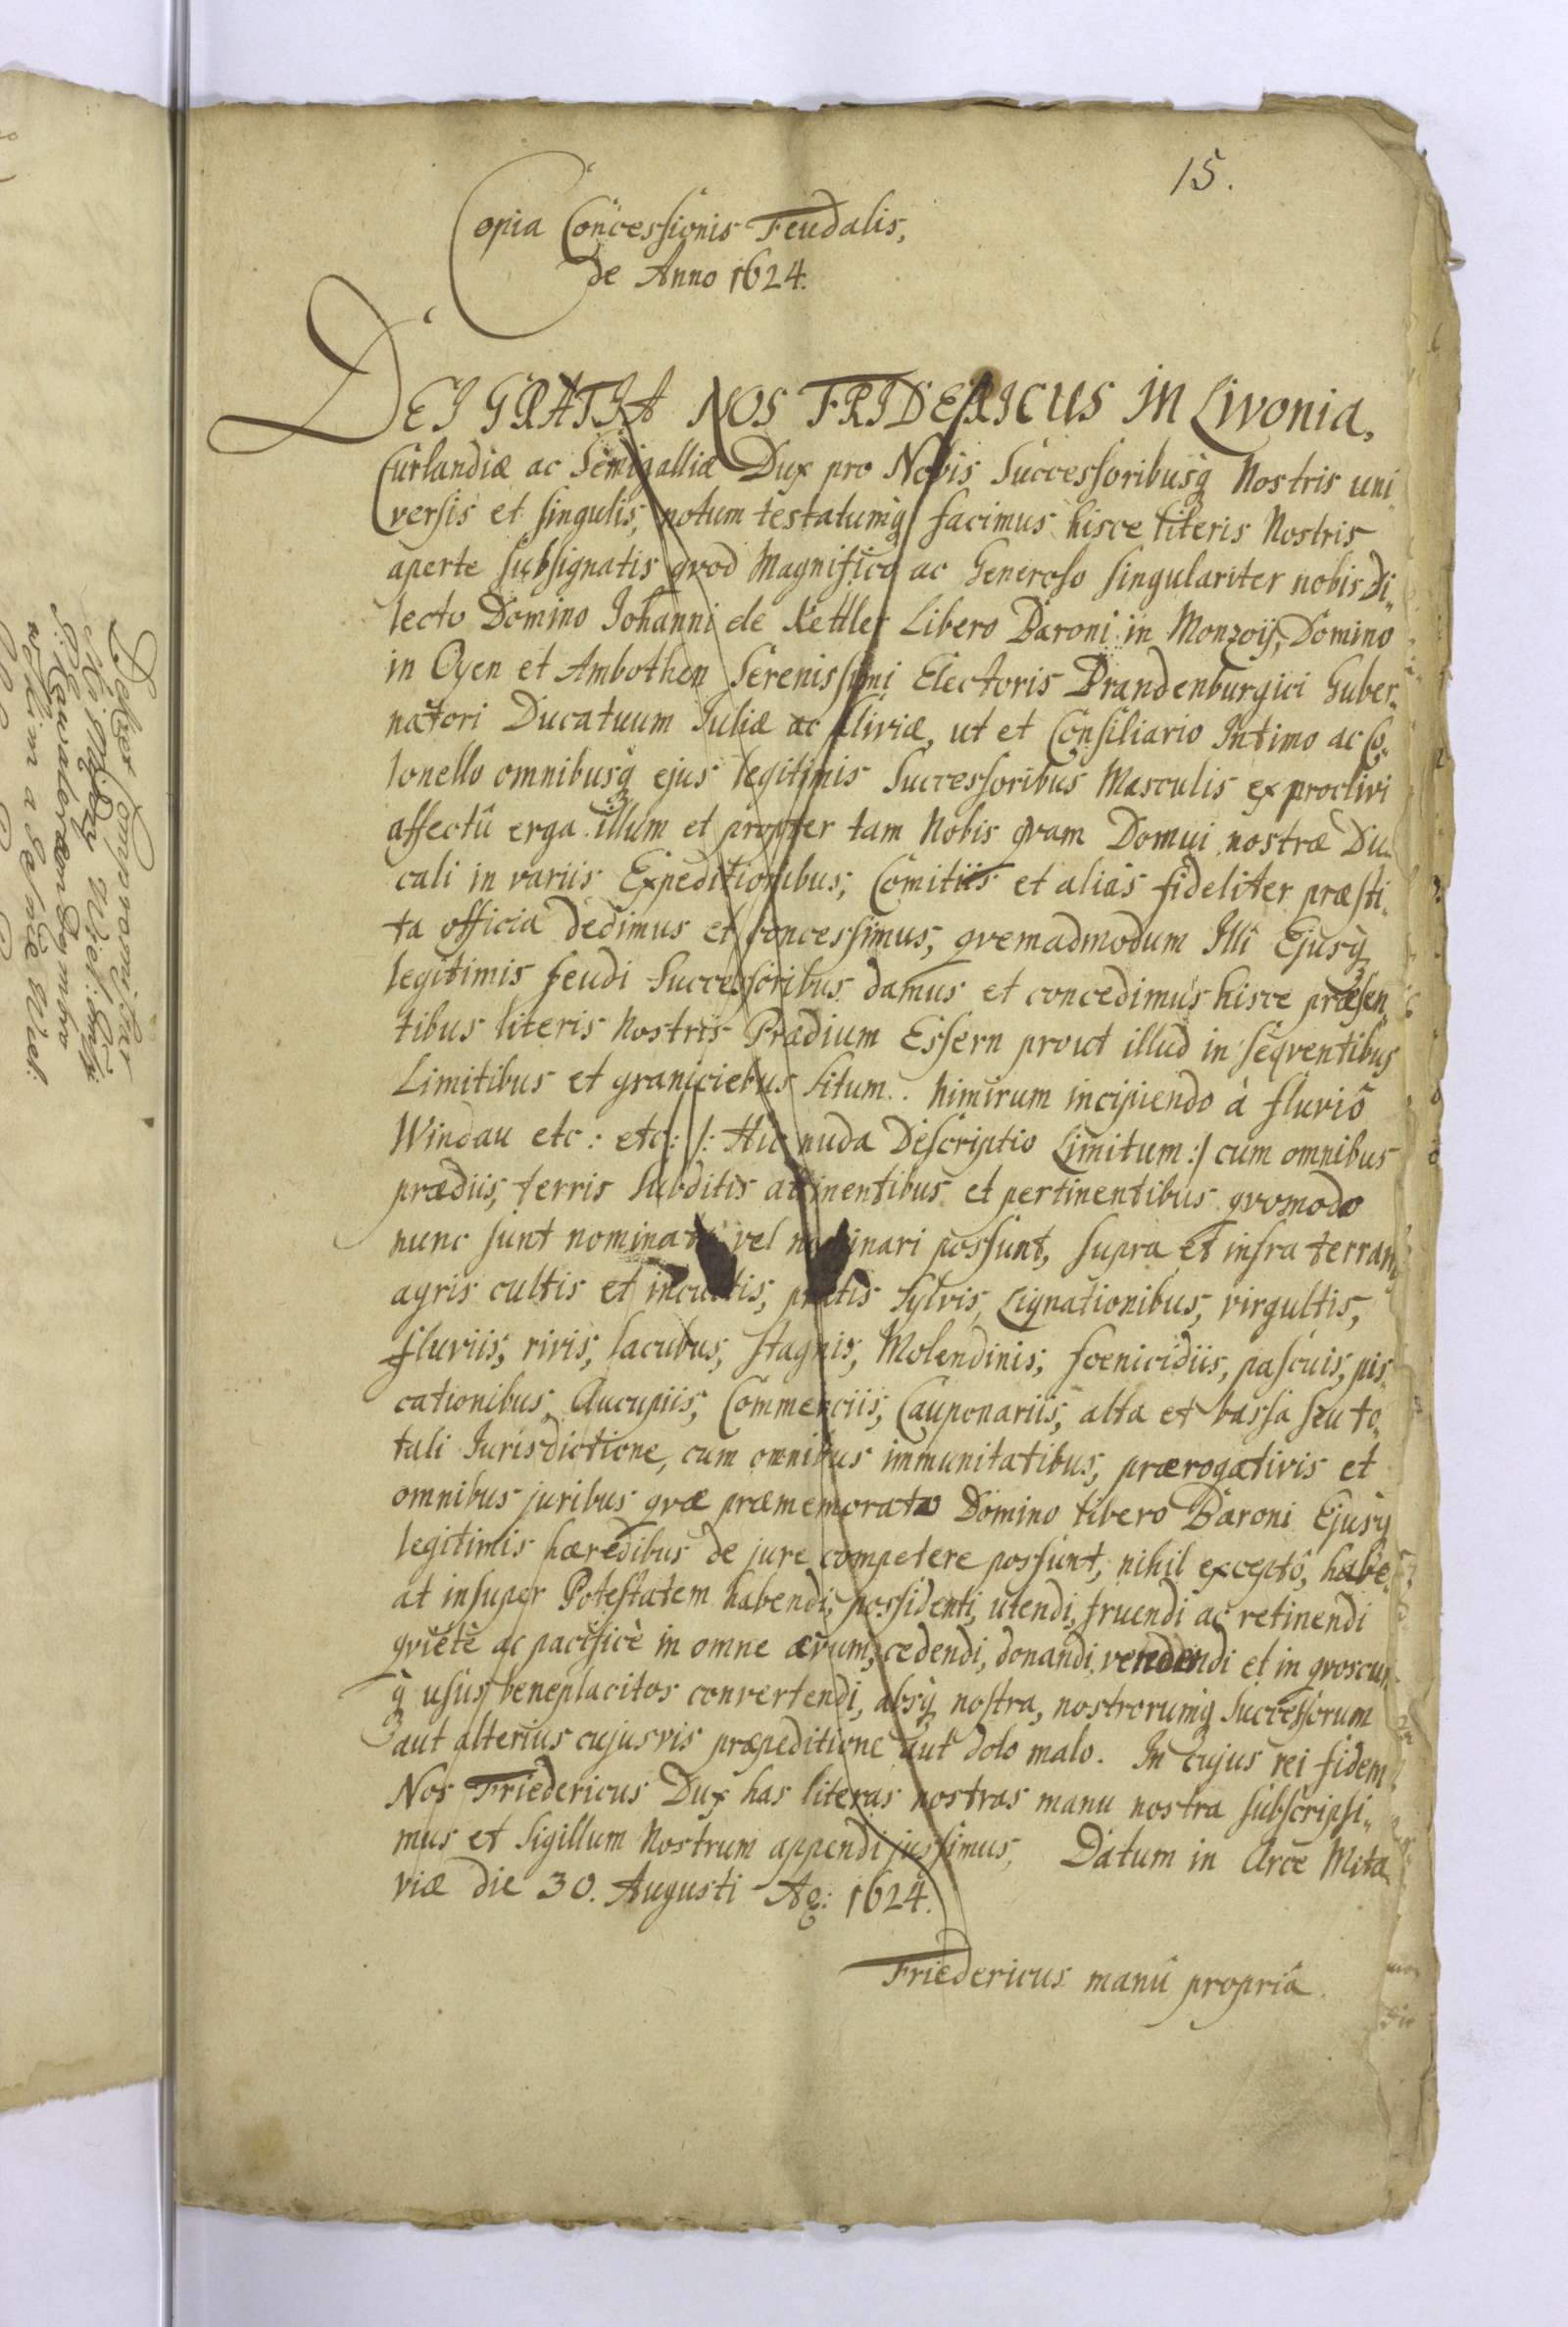 15.
Copia Concessionis Feudalis,
de Anno 1624.
DEI GRATIA NOS FRIDERICUS IN Livonia,
Curlandiæ ac Semigalliæ Dux pro Nobis Successoribusq Nostris uni
versis et singulis, notum testatumq facimus hisce literis Nostris
aperte subsignatis qvod Magnifico ac Generoso singulariter nobis Di,,
lecto Domino Iohanni de Kettler Libero Baroni in Monzoij, Domino
in Oyen et Ambothen Serenissimi Electoris Brandenburgici Guber,,
natori Ducatuum Iuliæ ac Cliviæ, ut et Consiliario Intimo ac Co,,
lonello omnibusq ejus legitimis Successoribus Masculis ex proclivi
affectû erga illum et propter tam Nobis qvam Domui nostræ Du,,
cali in variis Expeditionibus, Comitiis et aliàs fideliter præsti,,
ta officia dedimus et concessimus, qvemadmodum Illi Ejusq
legitimis feudi Successoribus damus et concedimus hisce præsen,,
tibus literis Nostris Prædium Essern prout illud in seqventibus
Limitibus et graniciebus situm. Nimirum incipiendo à fluviô
Windau etc: etc: /: Hic nuda Descriptio Limitum :/ cum omnibus
prædiis, terris subditis attinentibus et pertinentibus qvomodo
nunc sunt nominati vel nominari possunt, supra et infra terram
agris cultis et incultis, pratis Sylvis, Lignationibus, virgultis,
fluviis, rivis, lacubus, stagnis, Molendinis, foenicidiis, pascuis, pis,,
cationibus, Aucupiis, Commerciis, Cauponariis, alta et bassa seu to,,
tali Iurisdictione, cum omnibus immunitatibus, prærogativis et
omnibus juribus qvæ præmemorato Domino libero Baroni Ejusq
legitimis hæredibus de jure competere possunt, nihil exceptô, habe,,
at insuper Potestatem habendi, possidenti, utendi, fruendi ac retinendi
qviétè ac pacificè in omne ævum, cedendi, donandi, vendendi et in qvoscun,,
q usus beneplacitos convertendi, absq nostra, nostrorumq Successorum
aut alterius cujusvis præpeditione aut dolo malo. In cujus rei fidem
Nos Friedericus Dux has literas nostras manu nostra subscripsi,,
mus et Sigillum Nostrum appendi jussimus, Datum in Arce Mita
viæ die 30. Augusti Aō: 1624.
Friedericus manû propriâ.